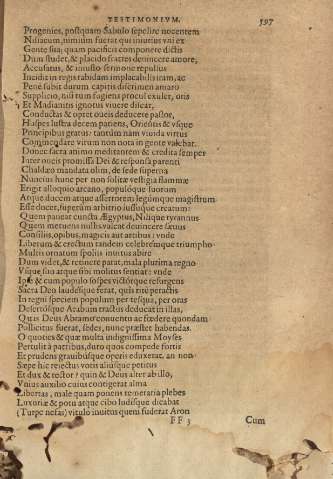 TESTIMONIVM. 597
Progenies, postquam sabulo sepelire nocentem
Niliacum, nimium fuerat qui iniurius vni ex
Gente sua; quam pacifico componere dictis
Dum studet, & placido fratres deuincere amore,
Accusatus, & iniusto sermone repulsus
Incidit in regis rabidam implacabilis iram, ac
Pene subit durum capitis discrimen amaro
Supplicio, nisi tum fugiens procul exulet, oris
Et Madianitis ignotus viuere discat,
Conductas & opere oues deducere pastor,
Hospes lustra decem patiens, Oriensis & vsque
Principibus gratus: tantùm nam viuida virtus
Commendare virum non nota in gente valebat.
Donec sacra animo meditantem & credita semper
Inter oueis promissa Dei & responsa parenti
Chaldæo mandata olim, de sede superna
Nuncius hunc per non solitæ vestigia flammæ
Erigit alloquio arcano, populóque suorum
Atque ducem atque assertorem legúmque magistrum
Esse docet, superûm arbitrio iussúsque creatum:
Quem paueat cuncta Ægyptus, Nilíque tyrannus
Quem metuens nullis valeat deuincere sæuus
Consiliis, opibus, magicis aut artibus: vnde
Liberum & erectum tandem celebrémque triumpho
Multis ornatum spoliis inuitus abire
Dum videt, & retinere parat, mala plurima regno
Vsque suo atque sibi molitus sentiat: vnde
Ipse & cum populo sospes victórque resurgens
Sacra Deo laudésque ferat, quis rite peractis
In regni speciem populum per tesqua, per oras
Desertósque Arabum tractus deducat in illas,
Quas Deus Abramo conuento ac fœdere quondam
Pollicitus fuerat, sedes, nunc præstet habendas.
O quoties & quæ multa indignissima Moyses
Pertulit à patribus, duro quos compede fortis
Et prudens grauibúsque operis eduxerat, an non
Sæpe hic reiectus votis aliúsque petitus
Et dux & rector? quin & Deus alter ab illo,
Vnius auxilio cuius contigerat alma
Libertas, male quam ponens temeraria plebes
Luxoriæ & potu atque cibo ludisque dicabat
(Turpe nefas) vitulo inuitus quem fuderat Aron
FF 3 Cum